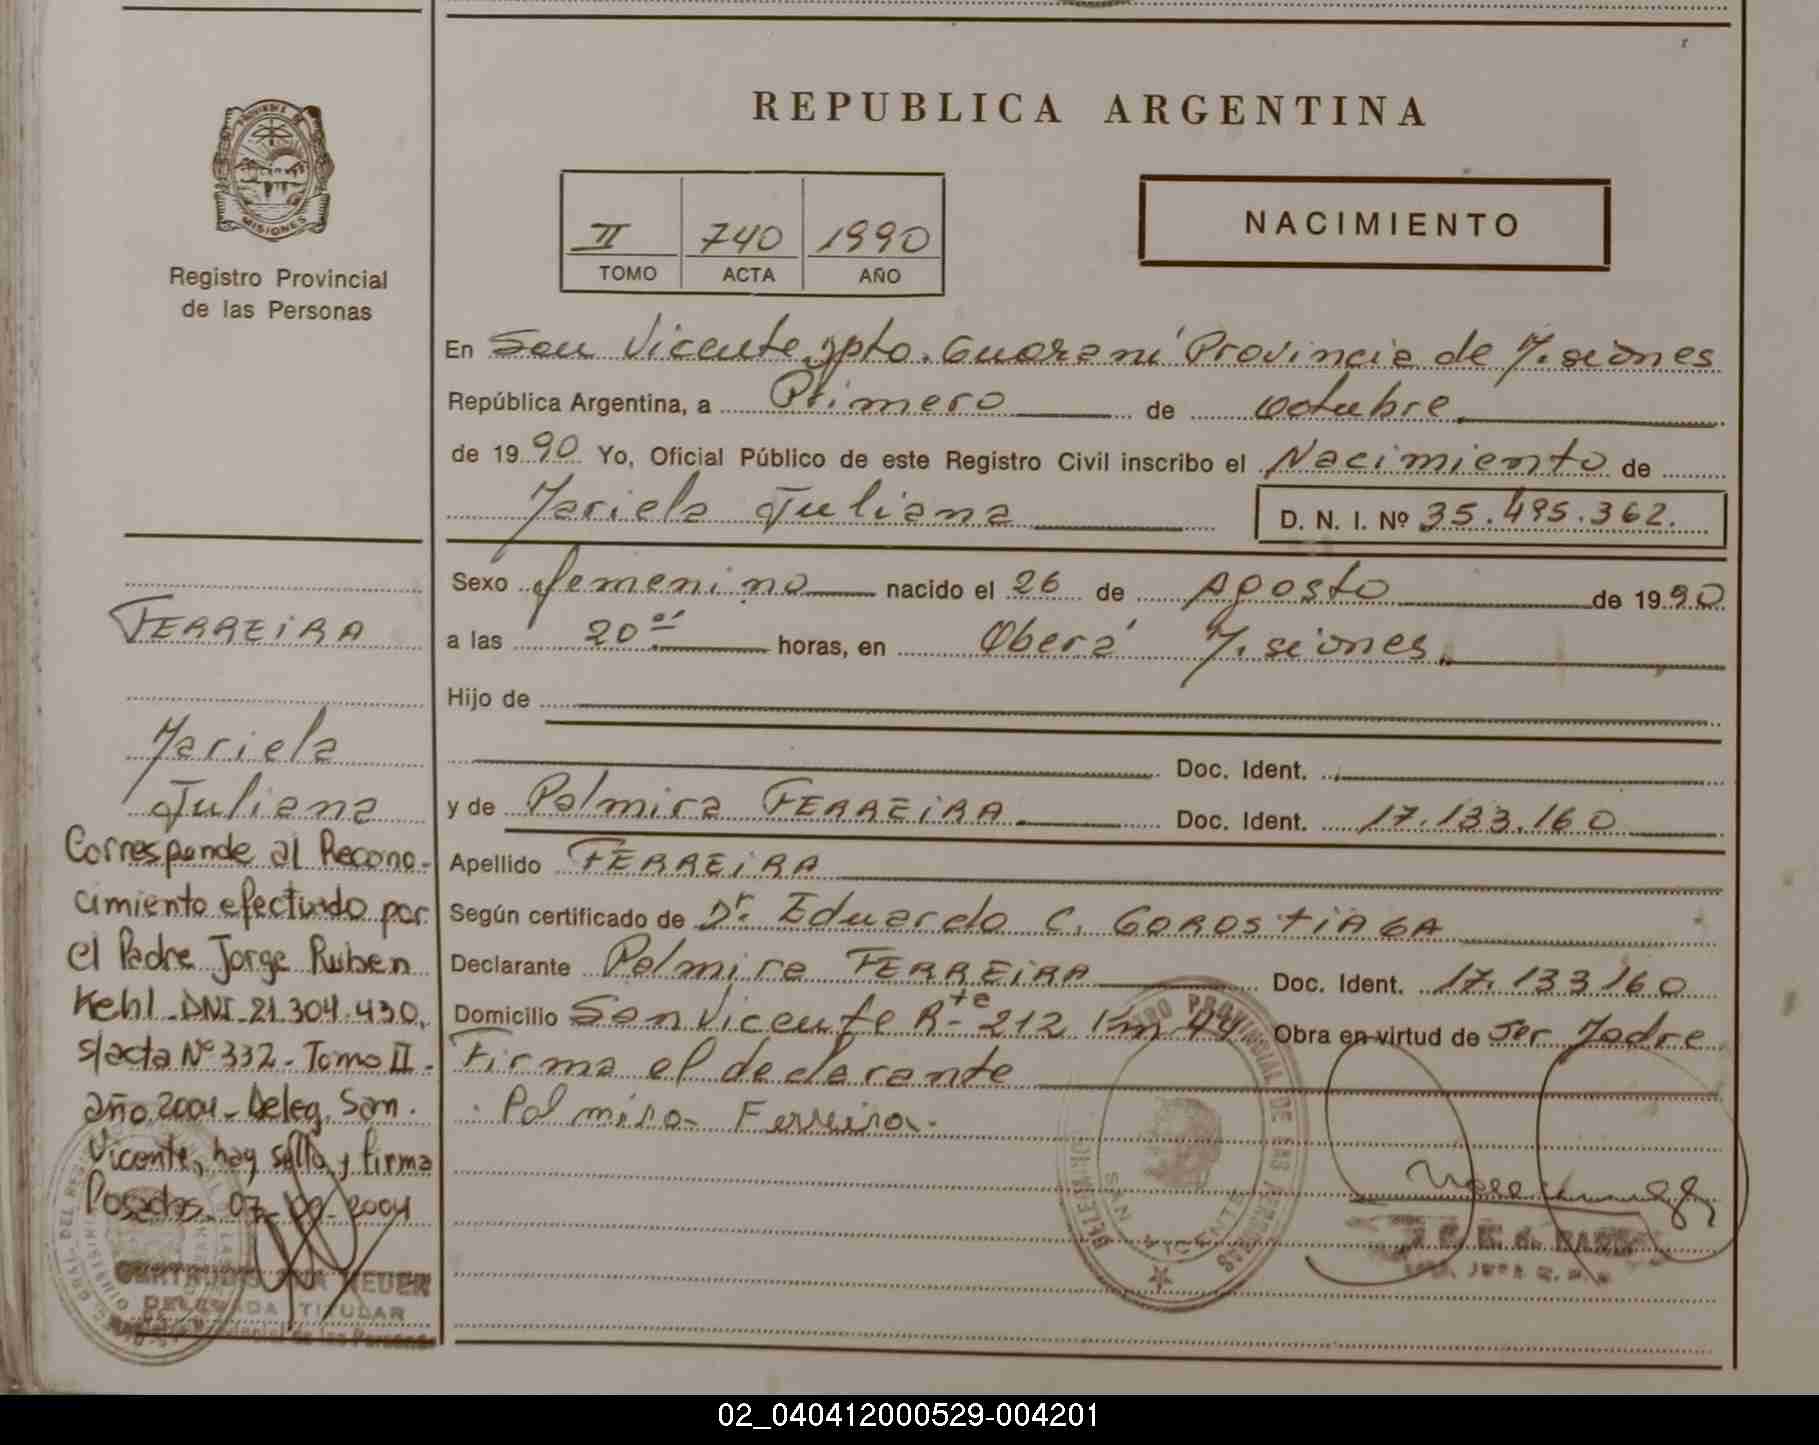 REPUBLICA ARGENTINA
PROVINCIA DE
MISIONES
Registro Provincial
de las Personas
II 740 1990
TOMO ACTA AÑO
NACIMIENTO
En San Vicente, Dpto. Guaraní Provincia de Misiones
República Argentina, a Primero de octubre
de 1990 Yo, Oficial Público de este Registro Civil inscribo el Nacimiento de
Mariela Juliana D. N. I. Nº 35.495.362.
Sexo femenino nacido el 26 de Agosto de 1990
a las 20 horas, en Oberá Misiones
Hijo de
Doc. Ident.
y de Palmira FERREIRA Doc. Ident. 17.133.160
Apellido FERREIRA
Según certificado de Dr. Eduardo C. GOROSTIAGA
Declarante Palmira FERREIRA Doc. Ident. 17.133160
Domicilio San Vicente R-te 212 Km 44 Obra en virtud de Ser Madre
Firma el declarante
Palmira Ferreira.
FERREIRA
Mariela
Juliana
Corresponde al Recono-
cimiento efectuado por
el Padre Jorge Ruben
Kehl-DNI-21.304.430,
s/acta Nº 332-Tomo II-
año 2004-Deleg. San
Vicente, hay sello y firma
Posadas, 07-09-2004
DELEGADA TITULAR
Registro Provincial de las Personas
02_040412000529-004201